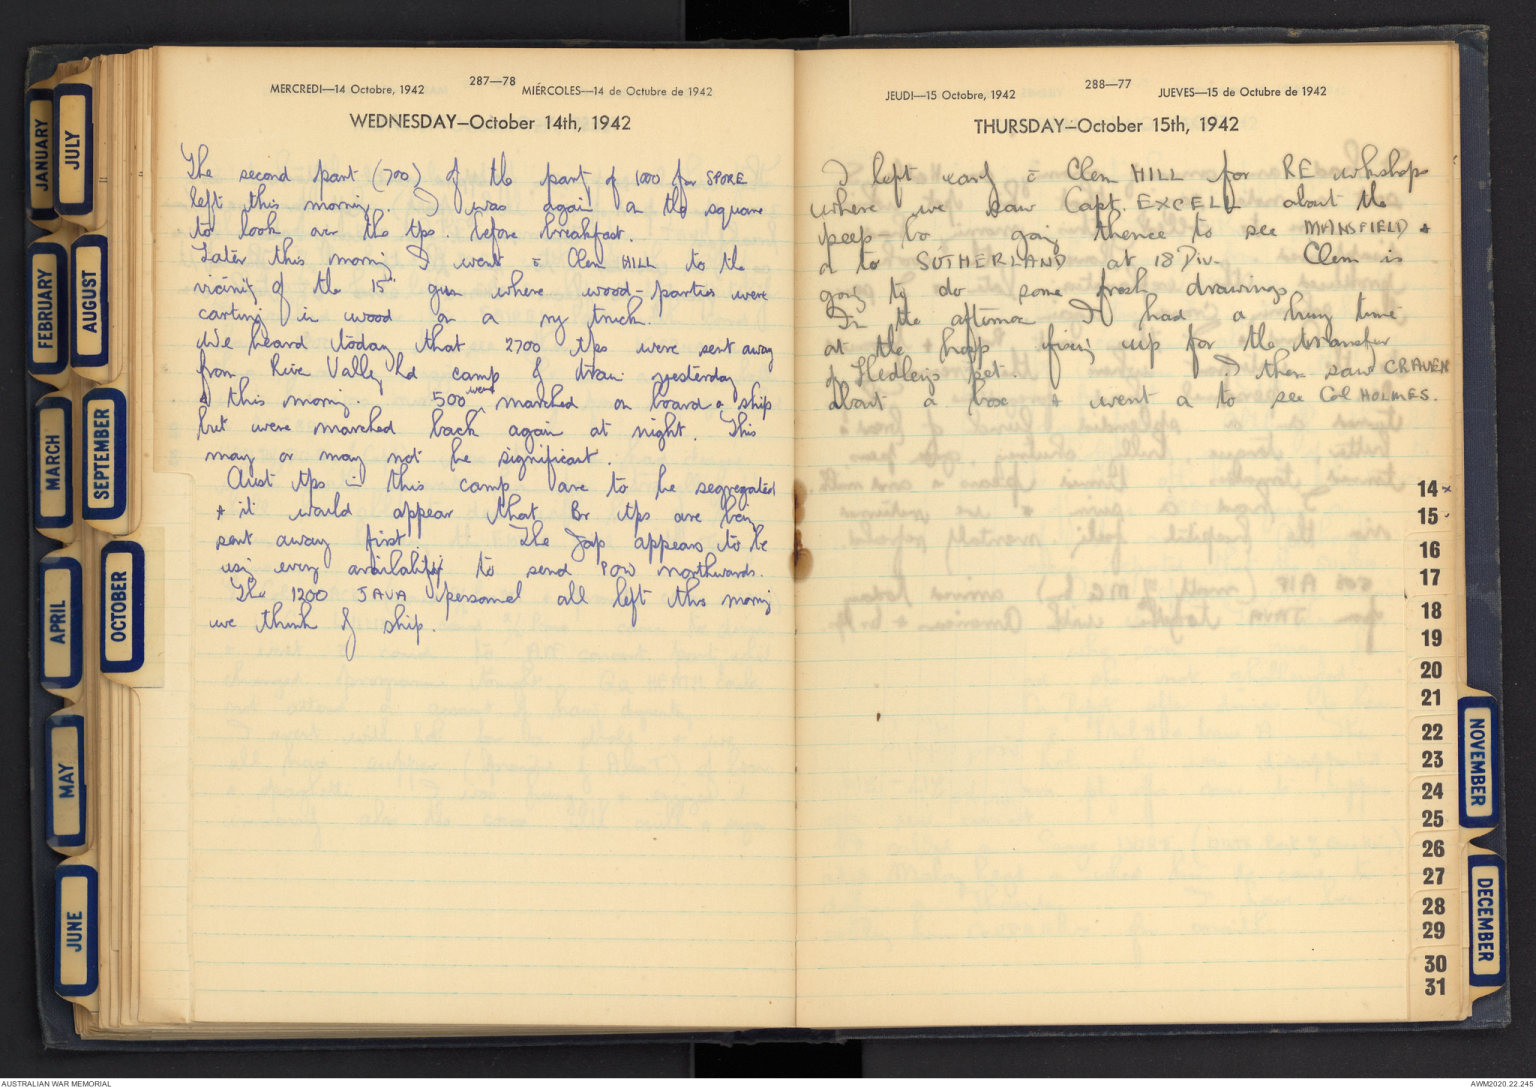 287—78
MERCREDI—14 Octobre, 1942 MIÉRCOLES—14 de Octubre de 1942
WEDNESDAY—October 14th, 1942
The second part (700) of the party of 1000 for SPORE
left this morning. I was again on the square
to look over the tps. before breakfast.
Later this morning I went c̄ Clem HILL to the
vicinity of the 15" gun where wood-parties were
carting in wood on a ry truck.
We heard today that 2700 tps were sent away
from River Valley Rd camp by train yesterday
& this morning. 500 were marched on board a ship
but were marched back again at night. This
may or may not be significant.
Aust tps in this camp are to be segregated
& it would appear that Br tps are being
sent away first. The Jap appears to be
using every availability to send POW northwards.
The 1200 JAVA personnel all left this morning
we think by ship.
288—77
JEUDI—15 Octobre, 1942 JUEVES—15 de Octubre de 1942
THURSDAY—October 15th, 1942
I left early c̄ Clem HILL for RE workshops
where we saw Capt. EXCELL about the
peep-bo going thence to see MANSFIELD &
to SUTHERLAND at 18 Div. Clem is
going to do some fresh drawings.
In the afternoon I had a busy time
at the hosp fixing up for the transfer
of Hedley's pet. I then saw CRAVEN
about a box & went on to see Col HOLMES.
JANUARY
FEBRUARY
MARCH
APRIL
MAY
JUNE
JULY
AUGUST
SEPTEMBER
OCTOBER
NOVEMBER
DECEMBER
14
15
16
17
18
19
20
21
22
23
24
25
26
27
28
29
30
31
AUSTRALIAN WAR MEMORIAL
AWM2020.22.245